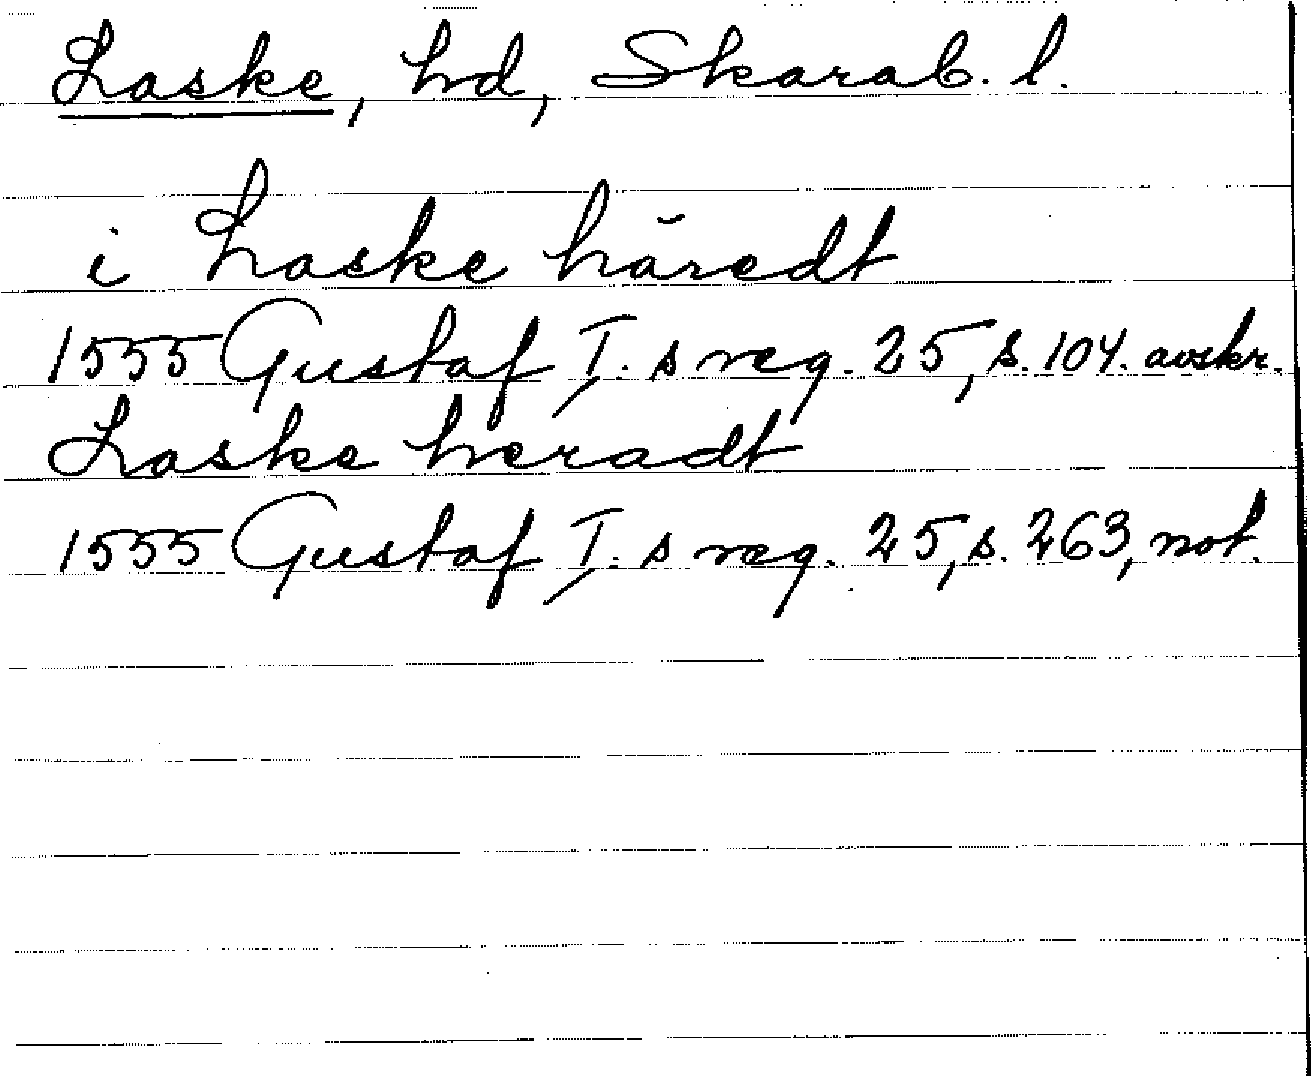 Laske, hd, Skarab. l.
i Laske häredt
1555 Gustaf I. s reg. 25, s. 104. avskr.
Laske heradt
1555 Gustaf I. s reg. 25, s. 263, not.